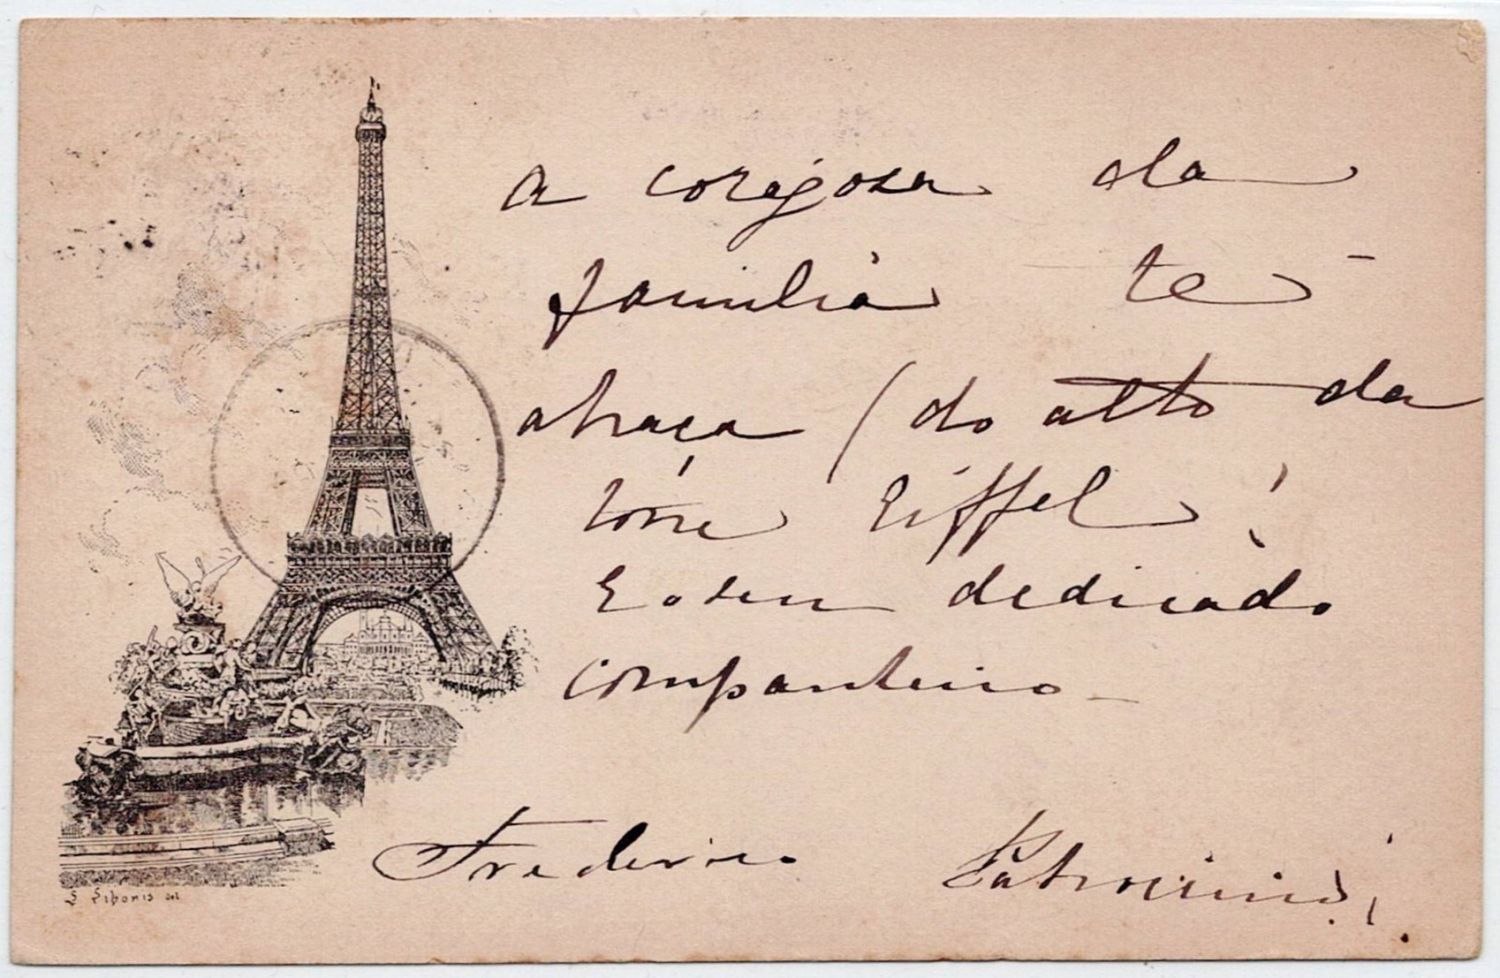 a corajosa da
familia te
abraça (do alto da
torre Eiffel!
E o seu dedicado
companheiro
Frederico Patrocinio
L Libonis del